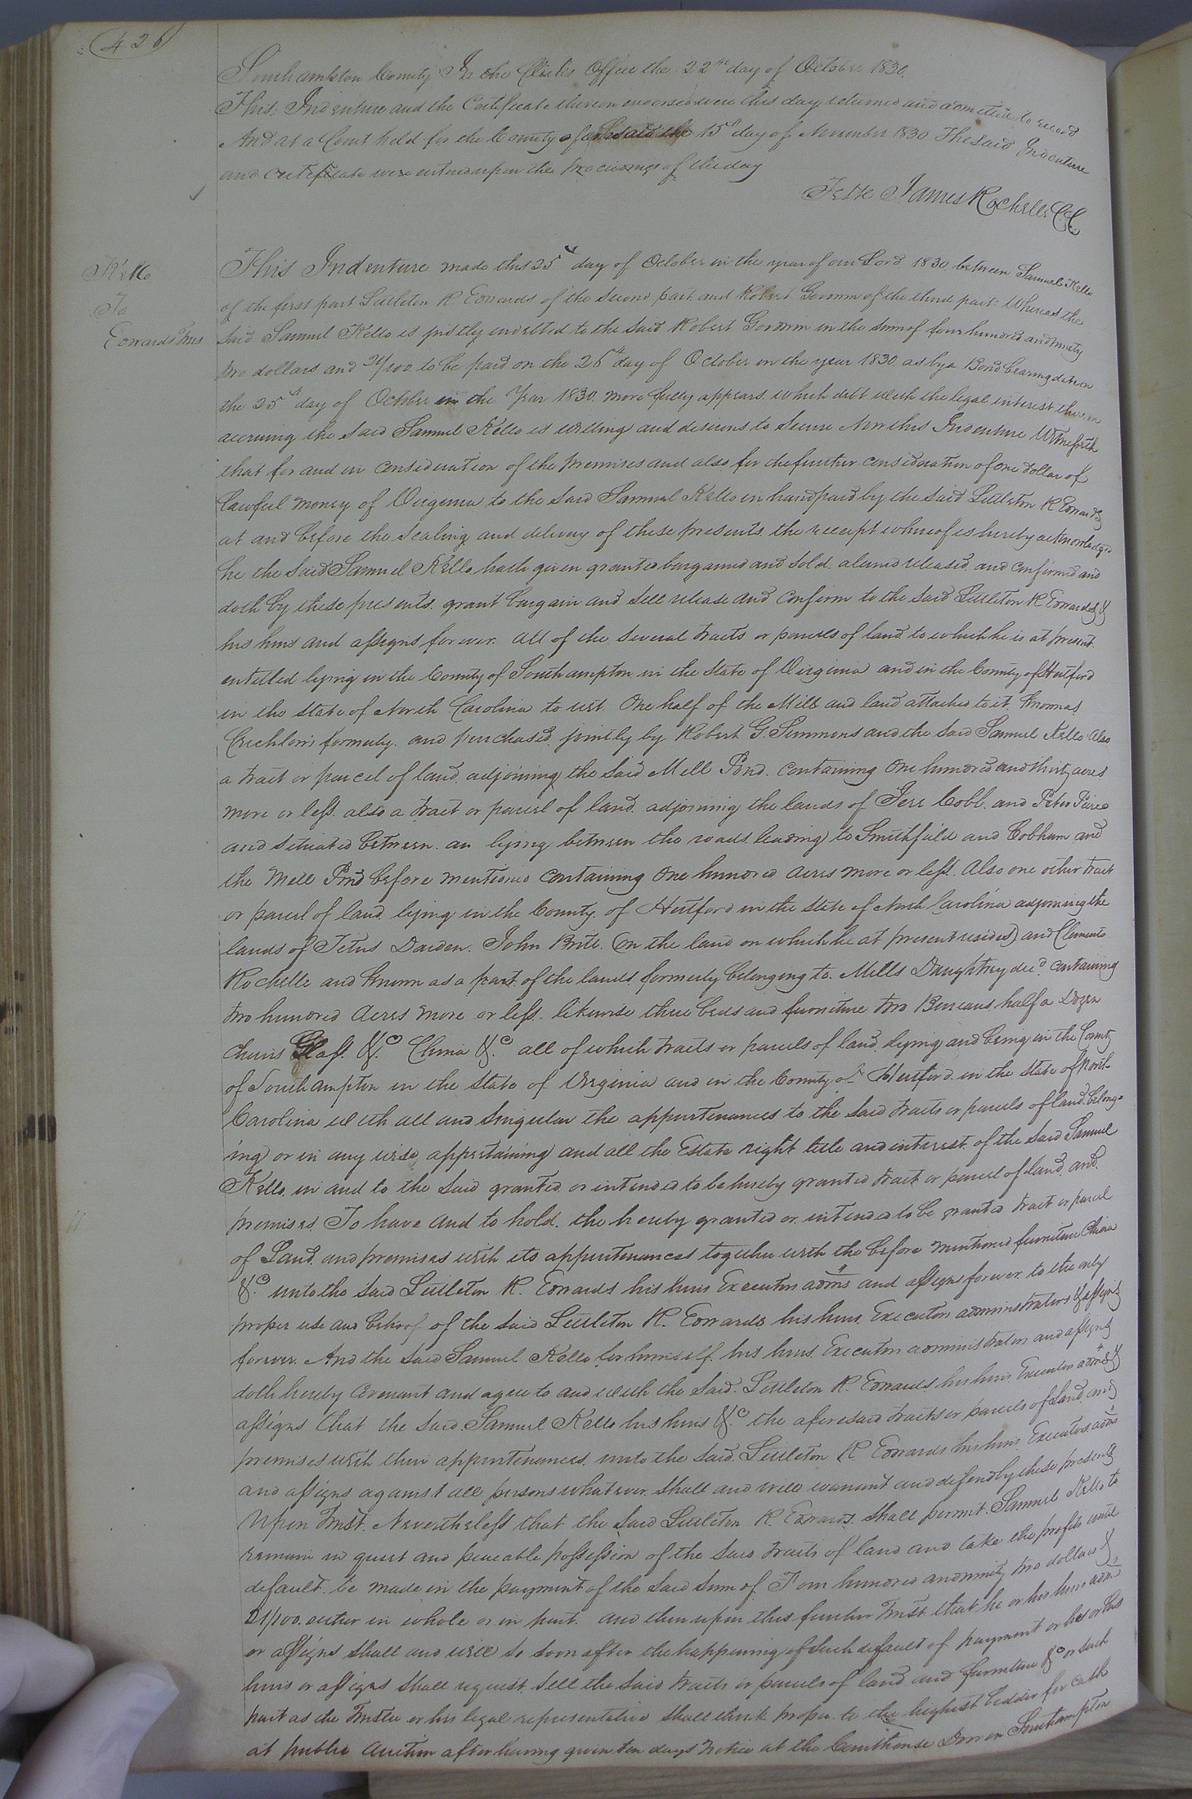 426
Southampton County In the Clerks Office the 22nd day of October 1830.
This Indenture and the Certificate thereon endorsed were this day returned and admitted to record
And at a Court held for the County of Southampton the 15th day of November 1830 The said Indenture
and certificate were entered upon the proceedings of the day
Teste James Rochelle CC
Kello
To
Edwards Trus
This Indenture made this 25th day of October in the year of our Lord 1830 between Samuel Kello
of the first part Littleton R Edwards of the second part and Robert Goodwin of the third part: Whereas the
said Samuel Kello is justly indebted to the said Robert Goodwin in the sum of four hundred and ninety
two dollars and 21/100 to be paid on the 26th day of October in the year 1830 as by a Bond bearing date on
the 25th day of October in the Year 1830 more fully appears which debt with the legal interest thereon
accruing the said Samuel Kello is willing and desirous to secure Now this Indenture Witnesseth
that for and in consideration of the premises and also for the further consideration of one dollar of
lawful money of Virginia to the said Samuel Kello in hand paid by the said Littleton R Edwards
at and before the sealing and delivery of these presents, the receipt whereof is hereby acknowledged
he the said Samuel Kello hath given granted bargained and sold aliened released and confirmed and
doth by these presents grant bargain and sell release and confirm to the said Littleton R Edwards &
his heirs and assigns forever. all of the several tracts or parcels of land to which he is at present
entitled lying in the County of Southampton in the State of Virginia and in the County of Hertford
in the State of North Carolina to wit One half of the Mill and land attached to it Thomas
Crichlow's formerly and purchased jointly by Robert G. Simmons and the said Samuel Kello also
a tract or parcel of land adjoining the said Mill Pond containing One hundred and thirty acres
more or less also a tract or parcel of land adjoining the lands of Jere Cobb and Peter Pierce
and situated between an lying between the roads leading to Smithfield and Cobham and
the Mill Pond before mentioned containing One hundred acres more or less Also one other tract
or parcel of land lying in the County of Hertford in the State of North Carolina adjoining the
lands of Titus Darden, John Brite (on the land on which he at present resided) and Clements
Rochelle and known as a part of the lands formerly belonging to Mills Daughtrey decd containing
two hundred Acres more or less likewise three beds and furniture two Bureaus half a Dozen
chairs Glass &c China &c all of which tracts or parcels of land lying and being in the County
of Southampton in the State of Virginia and in the County of Hertford in the State of North
Carolina with all and singular the appurtenances to the said tracts or parcels of land belong-
ing or in any wise appertaining and all the Estate right title and interest of the said Samuel
Kello in and to the said granted or intended to be hereby granted tract or parcel of land and
premises To have and to hold the hereby granted or intended to be granted tract or parcel
of Land and premises with its appurtenances together with the before mentioned furniture China
&c unto the said Littleton R. Edwards his heirs Executors adms and assigns forever to the only
proper use and behoof of the said Littleton R. Edwards his heirs, Executors administrators & assigns
forever And the said Samuel Kello for himself his heirs Executors administrators and assigns
doth hereby covenant and agree to and with the said Littleton R. Edwards his heirs Executors adms &
assigns that the said Samuel Kello his heirs &c the aforesaid tracts or parcels of land and
premises with their appurtenances unto the said Littleton R Edwards his heirs Executors adms
and assigns against all persons whatever shall and will warrant and defend by these presents
Upon Trust Nevertheless that the said Littleton R. Edwards shall permit Samuel Kello to
remain in quiet and peaceable possession of the said tracts of land and take the profits until
default be made in the payment of the said sum of Four hundred and ninety two dollars &
21/100 either in whole or in part and then upon this further Trust that he or his heirs adms
or assigns shall and will so soon after the happening of such default of payment as his or their
heirs or assigns shall request, sell the said tracts or parcels of land and furniture &c or such
part as the Trustee or his legal representative shall think proper to the highest bidder for cash
at public Auction after having given ten days notice at the Courthouse Door in Southampton